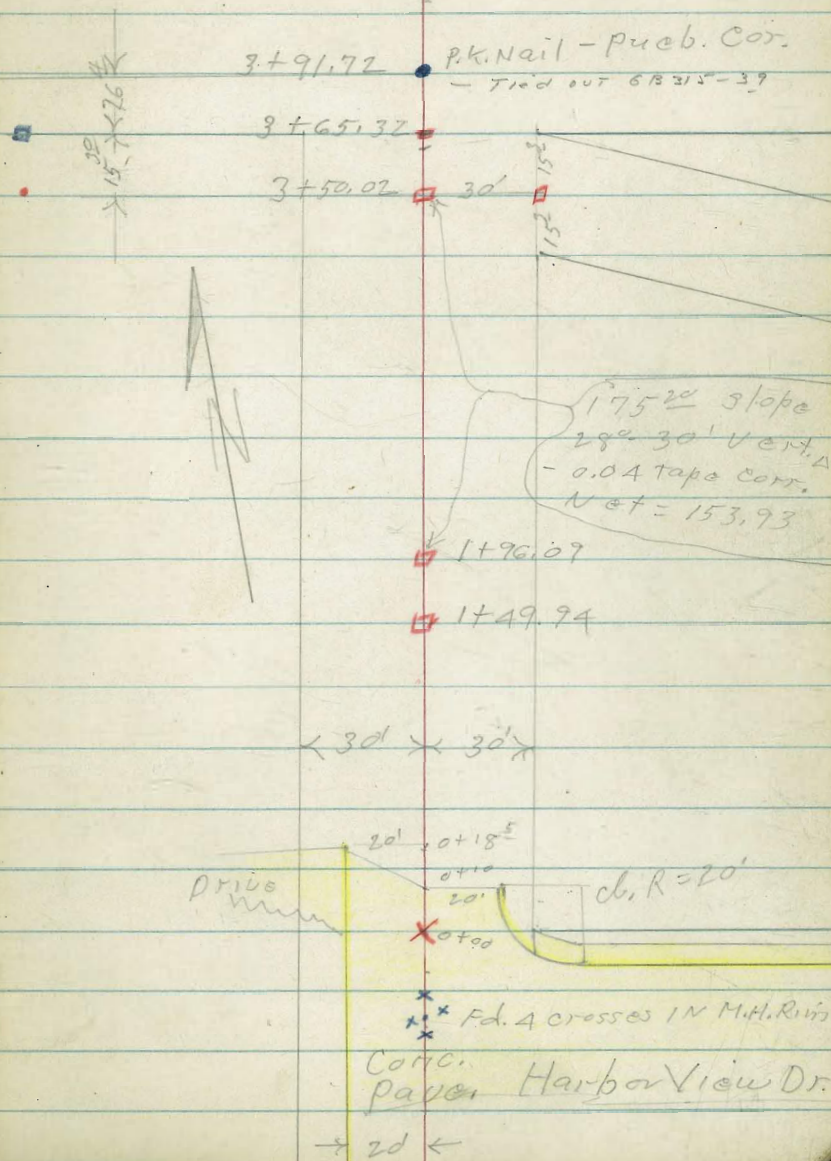 3+91.72 P.K. Nail - Pueb. Cor.
- Tied out GB 315-39
26 40
3+65.32
15 30
15 3
3+50.02 30'
15 2
N
175 20 slope
28°-30' Vert. Δ
- 0.04 Tape Corr.
Net = 153.93
1+96.09
1+49.94
30' 30'
20' 0+18 5
0+10
Drive 20' cb. R = 20'
0+00
Fd. 4 crosses IN M.H. Rim
Conc.
Pave. Harbor View Dr.
20